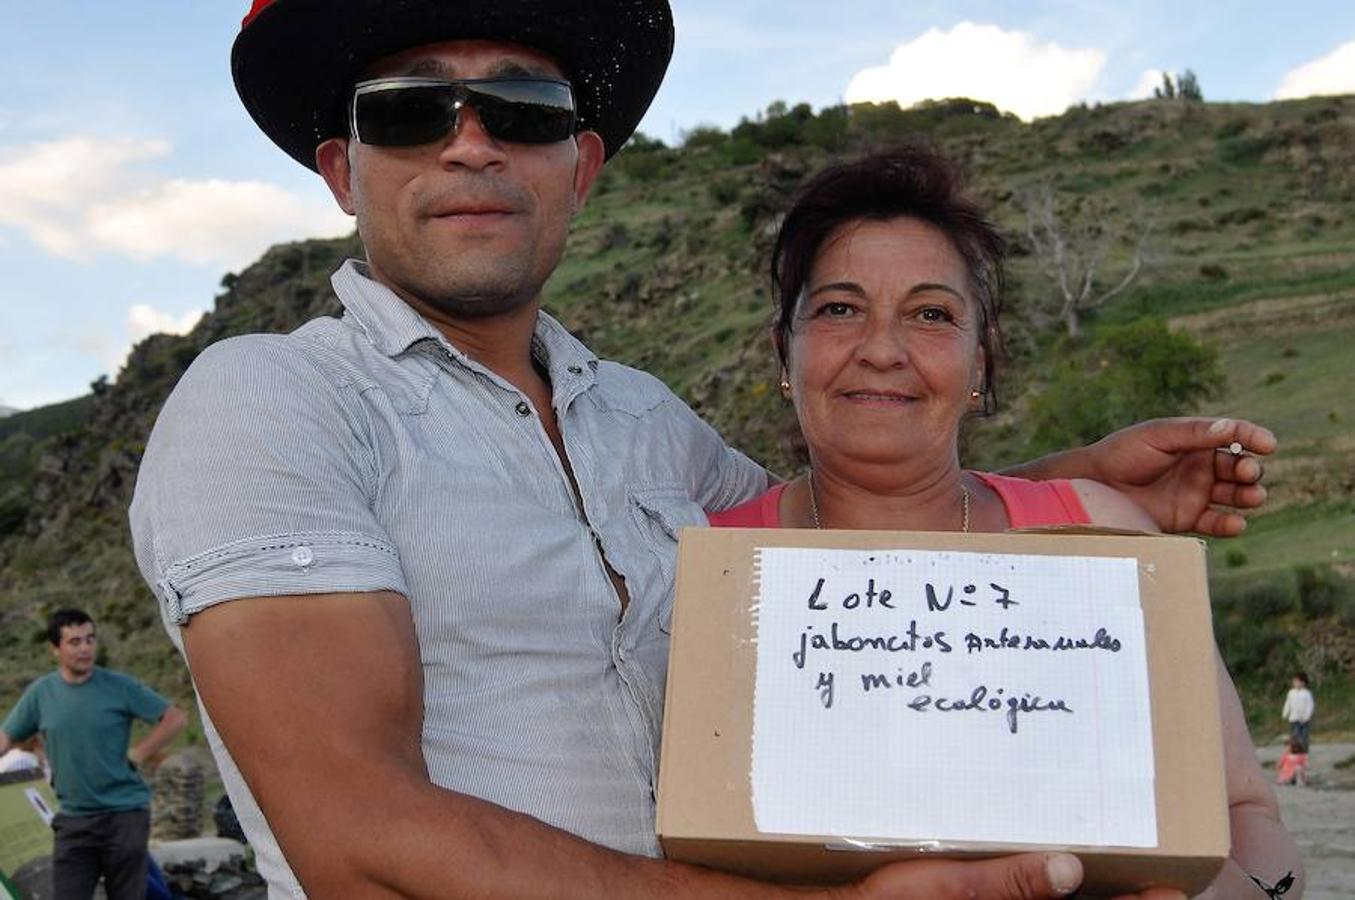 Lote Nº 7
jaboncitos Artesanales
y miel
ecológica